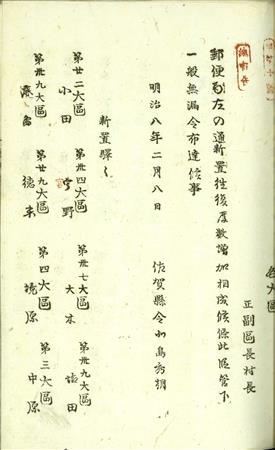 各大區
正副區長村長
郵便局左の通新置往復度数増加相成候條此段管下
一般無漏令布達候事
明治八年二月八日
佐賀縣令北島秀朝
新置驛々
第廿二大區 小田
第卅四大區 宇野
第卅七大區 大木
第卅九大區 塩田
第卅九大區 濱
第廿九大區 徳末
第四大區 境原
第三大區 中原